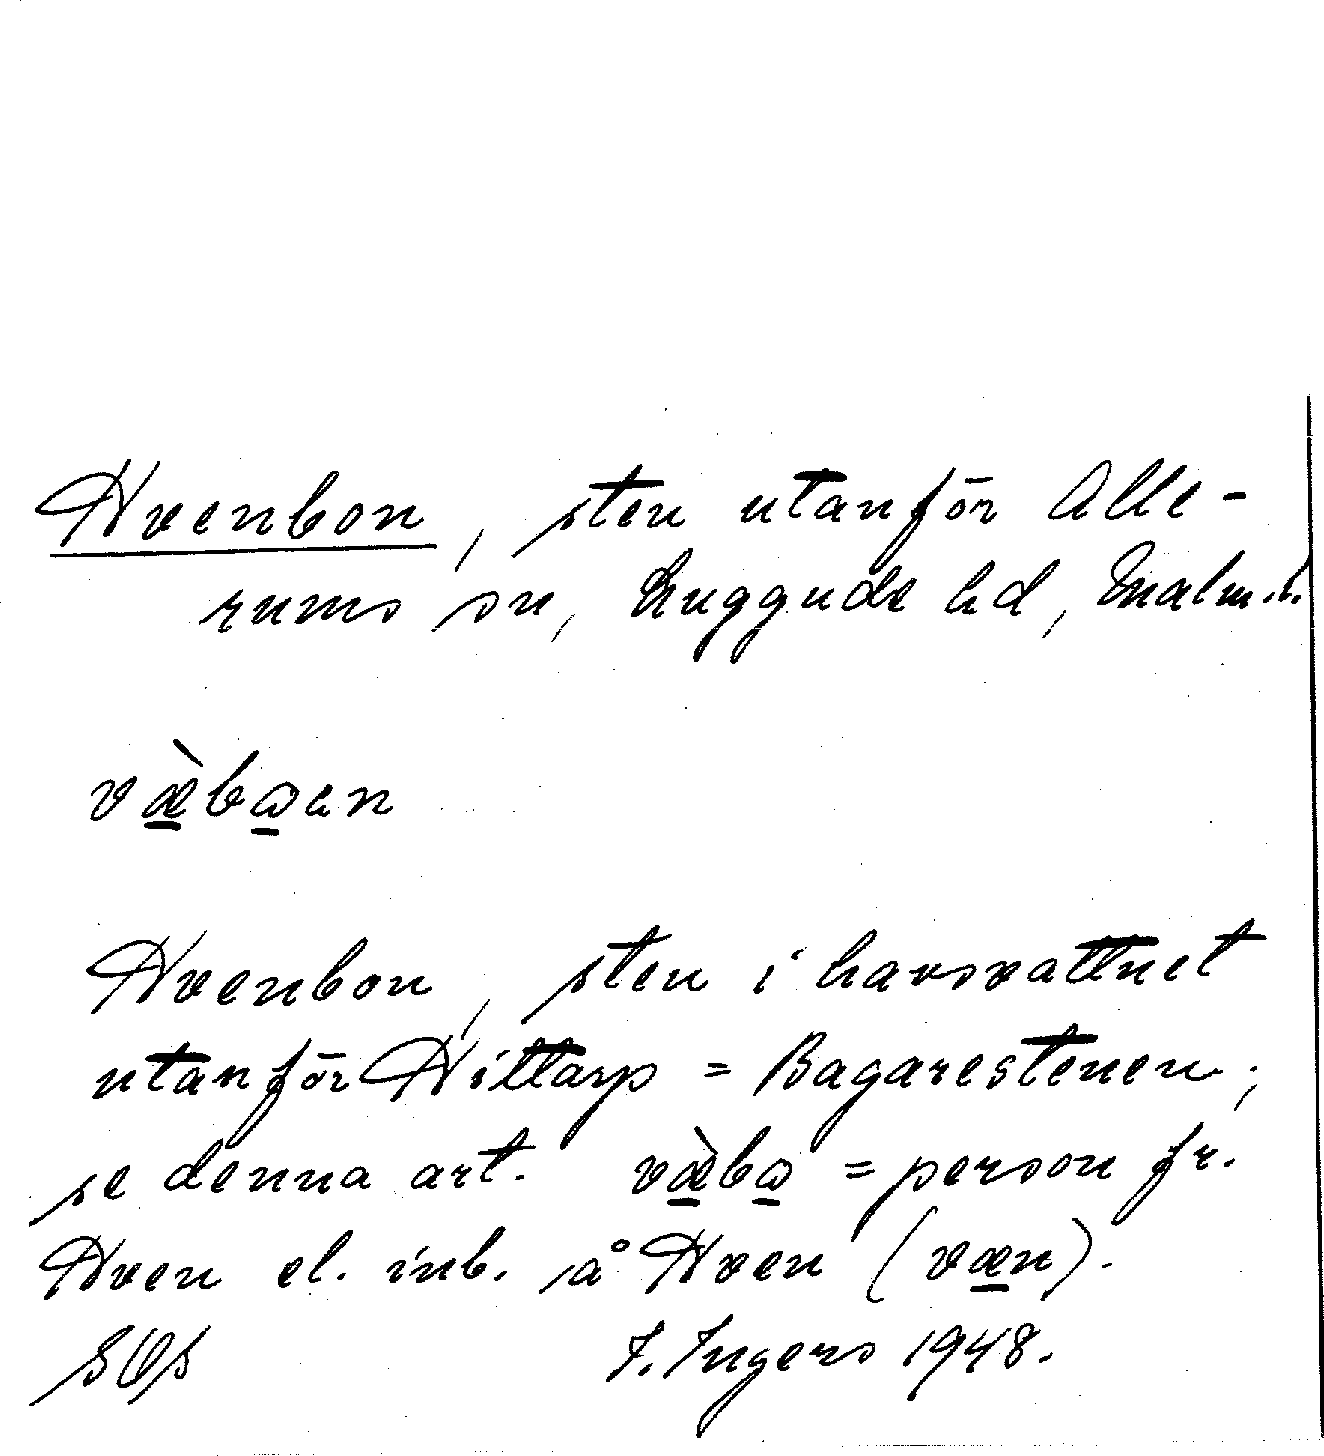 Hvenbon, sten utanför Alle-
rums sn, Luggude hd, Malm.l.
væ̀bɷen
Hvenbon, sten i havsvattnet
utanför Hittarp = Bagarestenen;
se denna art. væ̀bɷ = person fr.
Hven el. inb. å Hven (væn).
SOS I. Ingers 1948.